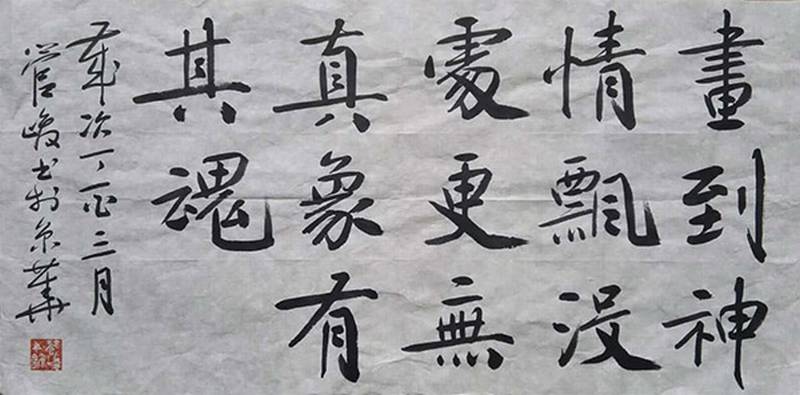 畫到神
情飄没
處更無
真象有
其魂
歲次丁酉三月
管峻书於京華